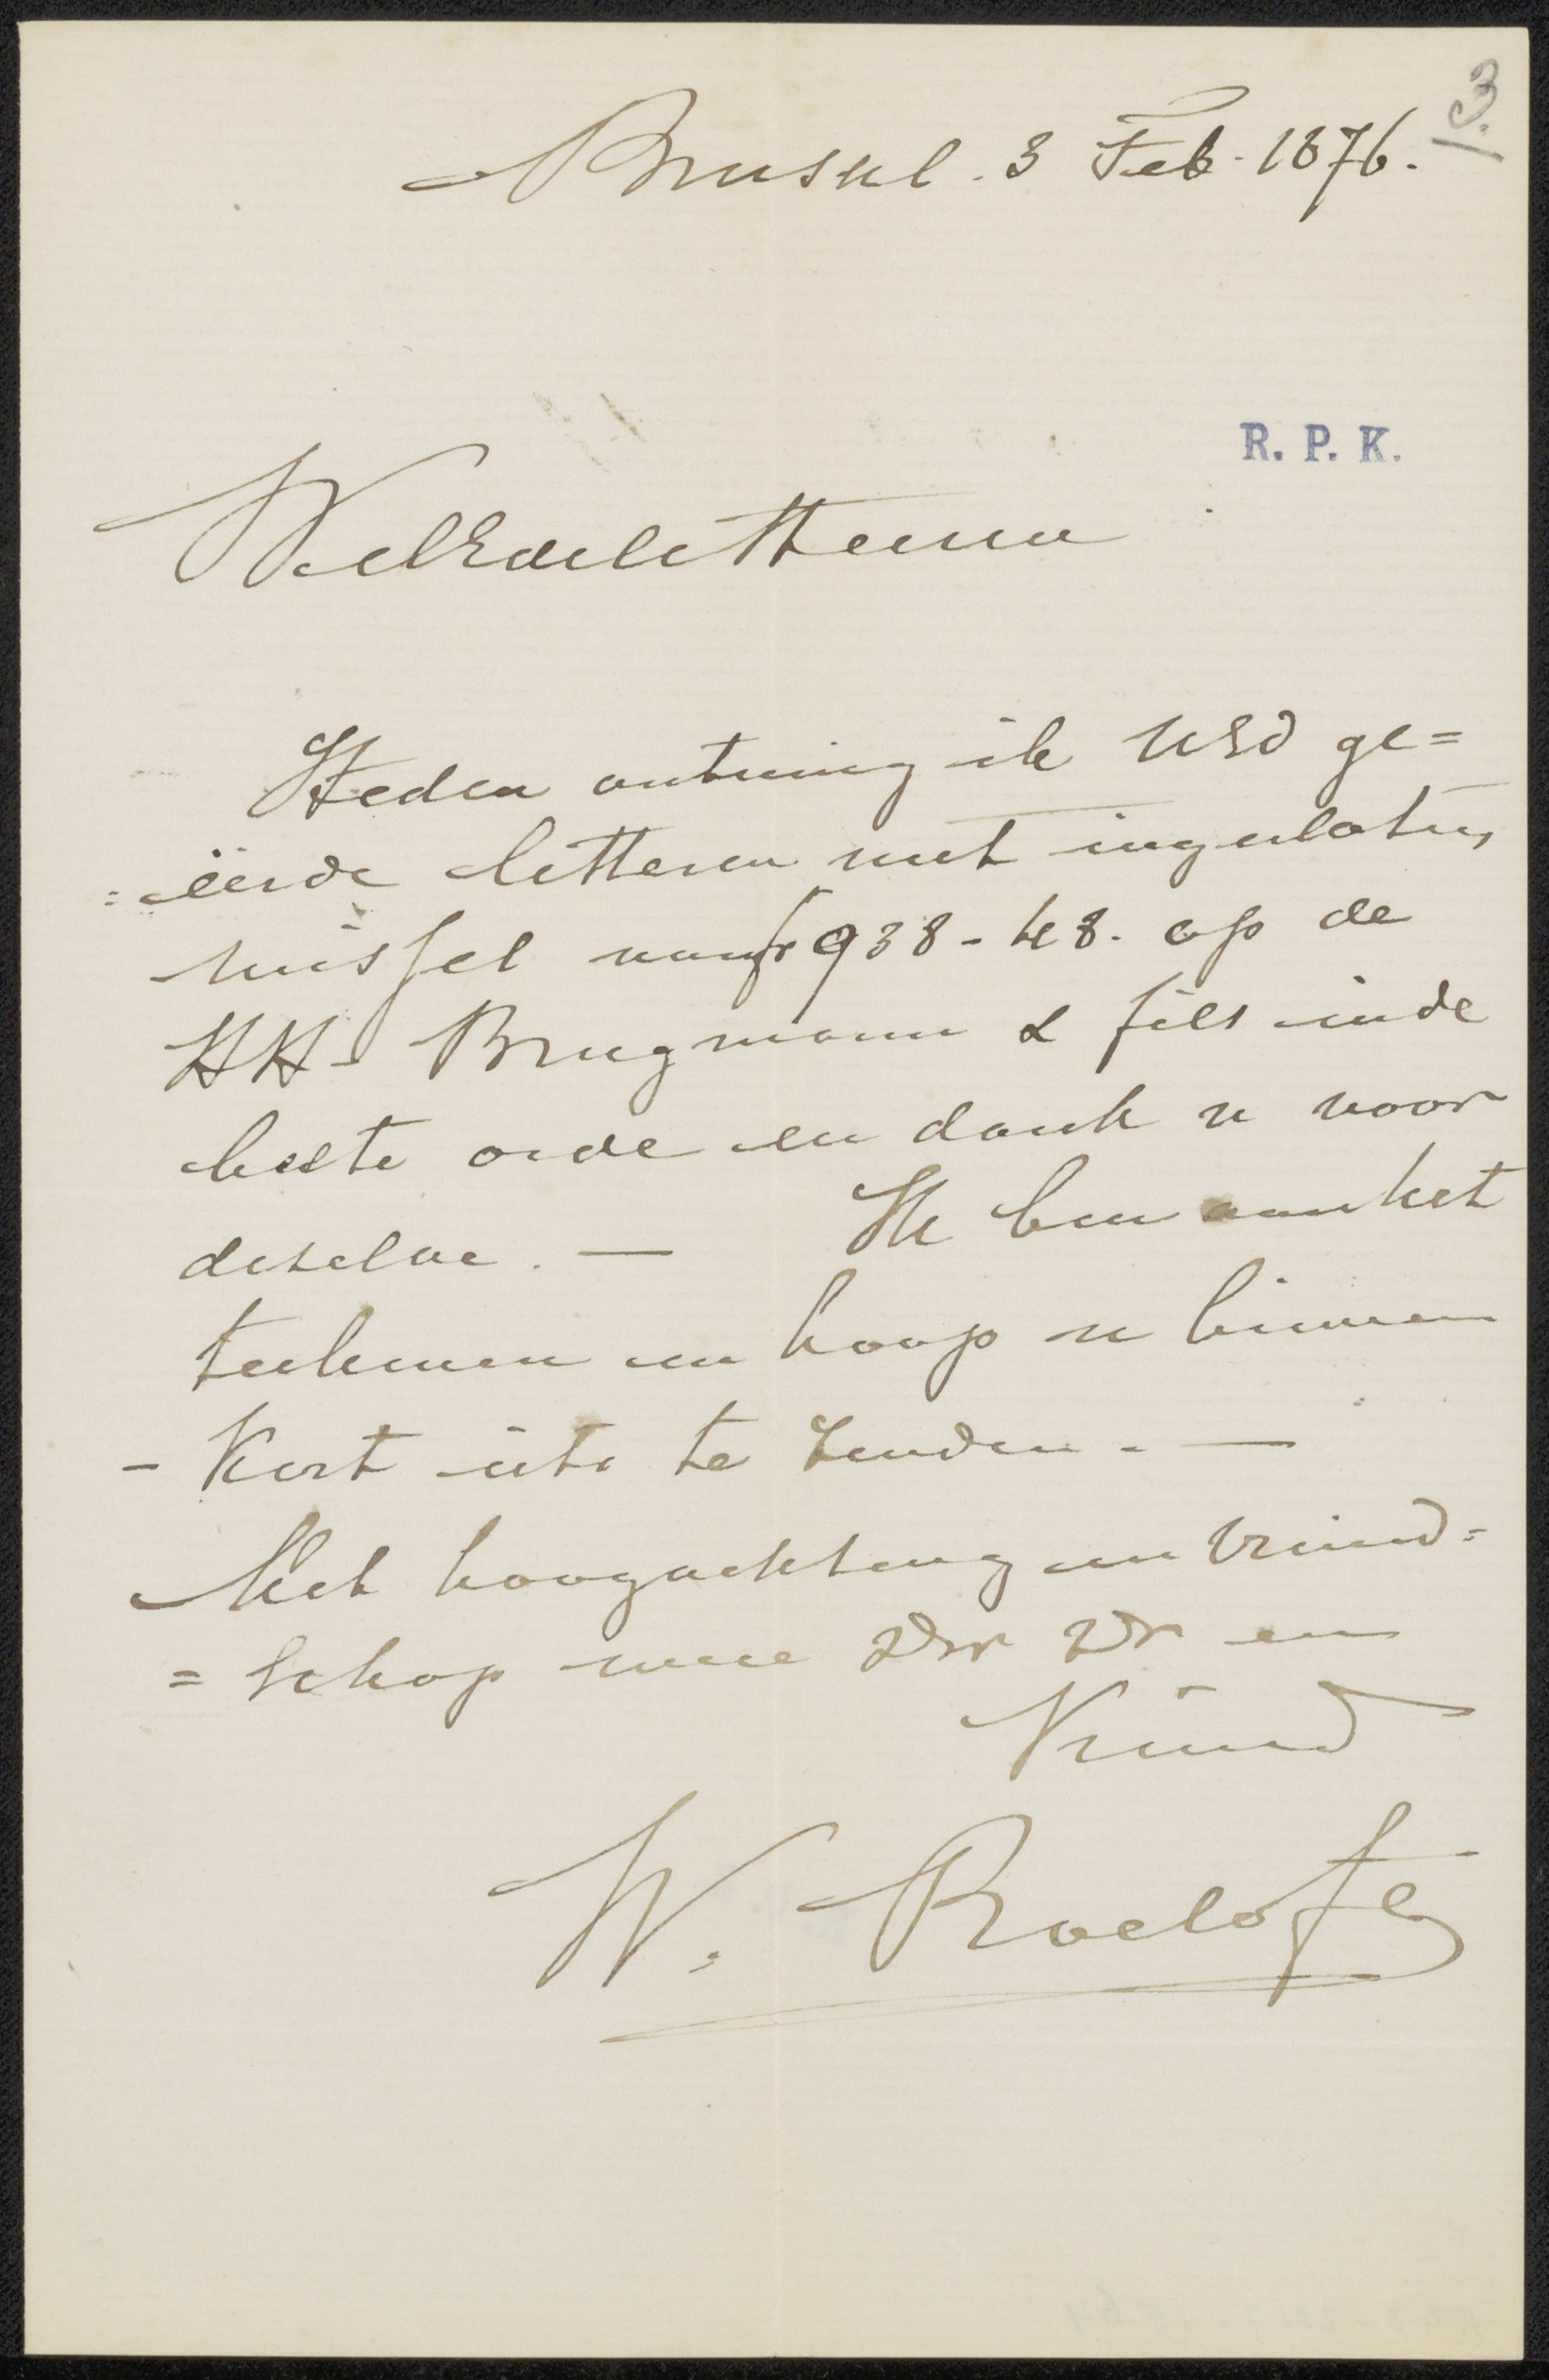 103
Brussel. 3 Feb. 1876.
R. P. K.
WelEdele Heeren
Heden ontving ik UEd ge=
=eerde letteren met ingesloten
wissel van fr 938-48. op de
HH. Brugmann & fils in de
beste orde en dank u voor
dezelve. — Ik ben aan het
teekenen en hoop u binnen
- kort iets te zenden. —
Met hoogachting en vriend=
=schap uwe Dw Dr en
Vriend
W. Roelofs